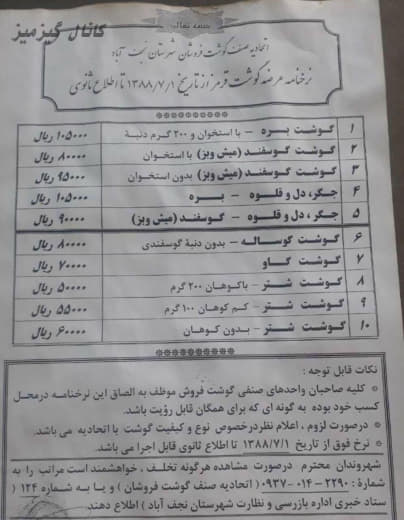 کانال گیزمیز
بسمه تعالی
اتحادیه صنف گوشت فروشان شهرستان نجف آباد
نرخنامه عرضه گوشت قرمز از تاریخ ۱۳۸۸/۷/۱ تا اطلاع ثانوی
۱ گوشت بره – با استخوان و ۲۰۰ گرم دنبه ۱۰۵۰۰۰ ریال
۲ گوشت گوسفند (میش وبز) با استخوان ۸۰۰۰۰ ریال
۳ گوشت گوسفند (میش وبز) بدون استخوان ۹۵۰۰۰ ریال
۴ جگر، دل و قلوه – بره ۱۰۵۰۰۰ ریال
۵ جگر، دل و قلوه – گوسفند (میش وبز) ۹۰۰۰۰ ریال
۶ گوشت گوساله – بدون دنبه گوسفندی ۸۰۰۰۰ ریال
۷ گوشت گاو ۷۰۰۰۰ ریال
۸ گوشت شتر – باکوهان ۲۰۰ گرم ۵۰۰۰۰ ریال
۹ گوشت شتر – کم کوهان ۱۰۰ گرم ۵۵۰۰۰ ریال
۱۰ گوشت شتر – بدون کوهان ۶۰۰۰۰ ریال
نکات قابل توجه :
کلیه صاحبان واحدهای صنفی گوشت فروش موظف به الصاق این نرخنامه درمحل
کسب خود بوده به گونه ای که برای همگان قابل رؤیت باشد.
درصورت لزوم ، اعلام نظردرخصوص نوع و کیفیت گوشت با اتحادیه می باشد.
نرخ فوق از تاریخ ۱۳۸۸/۷/۱ تا اطلاع ثانوی قابل اجرا می باشد.
شهروندان محترم درصورت مشاهده هرگونه تخلف ، خواهشمند است مراتب را به
شماره : ۲۲۹۰ - ۰۱۴ - ۰۹۳۷ ( اتحادیه صنف گوشت فروشان ) و یا به شماره ۱۲۴ (
ستاد خبری اداره بازرسی و نظارت شهرستان نجف آباد ) اطلاع دهند.